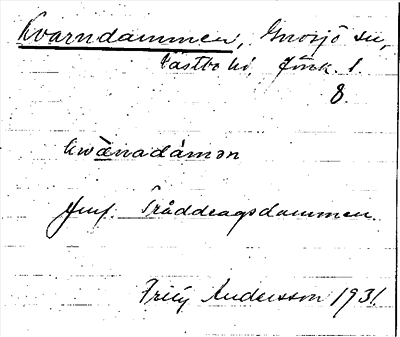 Kvarndammen, Gnosjö sn,
Västbo hd, Jönk. l.
8.
kwànadámən
Jmf. Tråddragsdammen.
Fritz Andersson 1931